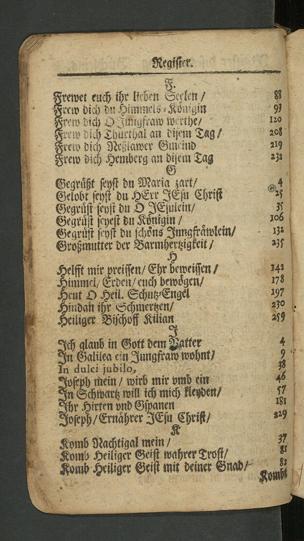 Register.
F.
Frewet euch ihr lieben Seelen / 88
Frew dich du Himmels-Königin 93
Frew dich O Jungfraw werthe / 120
Frew dich Thurthal an disem Tag / 208
Frew dich Neßlawer Gmeind 219
Frew dich Hemberg an disem Tag 231
G
Gegrüßt seyst du Maria zart / 4
Gelobt seyst du HErr JEsu Christ 25
Gegrüst seyst du O JEsulein / 35
Gegrüst seyest du Königin / 106
Gegrüst seyst du schöns Jungfräwlein / 132
Großmutter der Barmhertzigkeit / 235
H
Helfft mir preissen / Ehr beweissen / 142
Himmel / Erden / euch bewögen / 178
Heut O Heil. Schutz-Engel 197
Hindan ihr Schmertzen / 230
Heiliger Bischoff Kilian 259
J
Ich glaub in Gott dem Vatter 4
In Galilea ein Jungfraw wohnt / 9
In dulci jubilo, 38
Joseph mein / wird mir vmb ein 46
In Schwartz will ich mich kleyden / 57
Ihr Hirten vnd Gspanen 181
Joseph / Ernährer JEsu Christ / 229
K
Komb Nachtigal mein / 37
Komb Heiliger Geist wahrer Trost / 81
Komb Heiliger Geist mit deiner Gnad / 82
Kombt